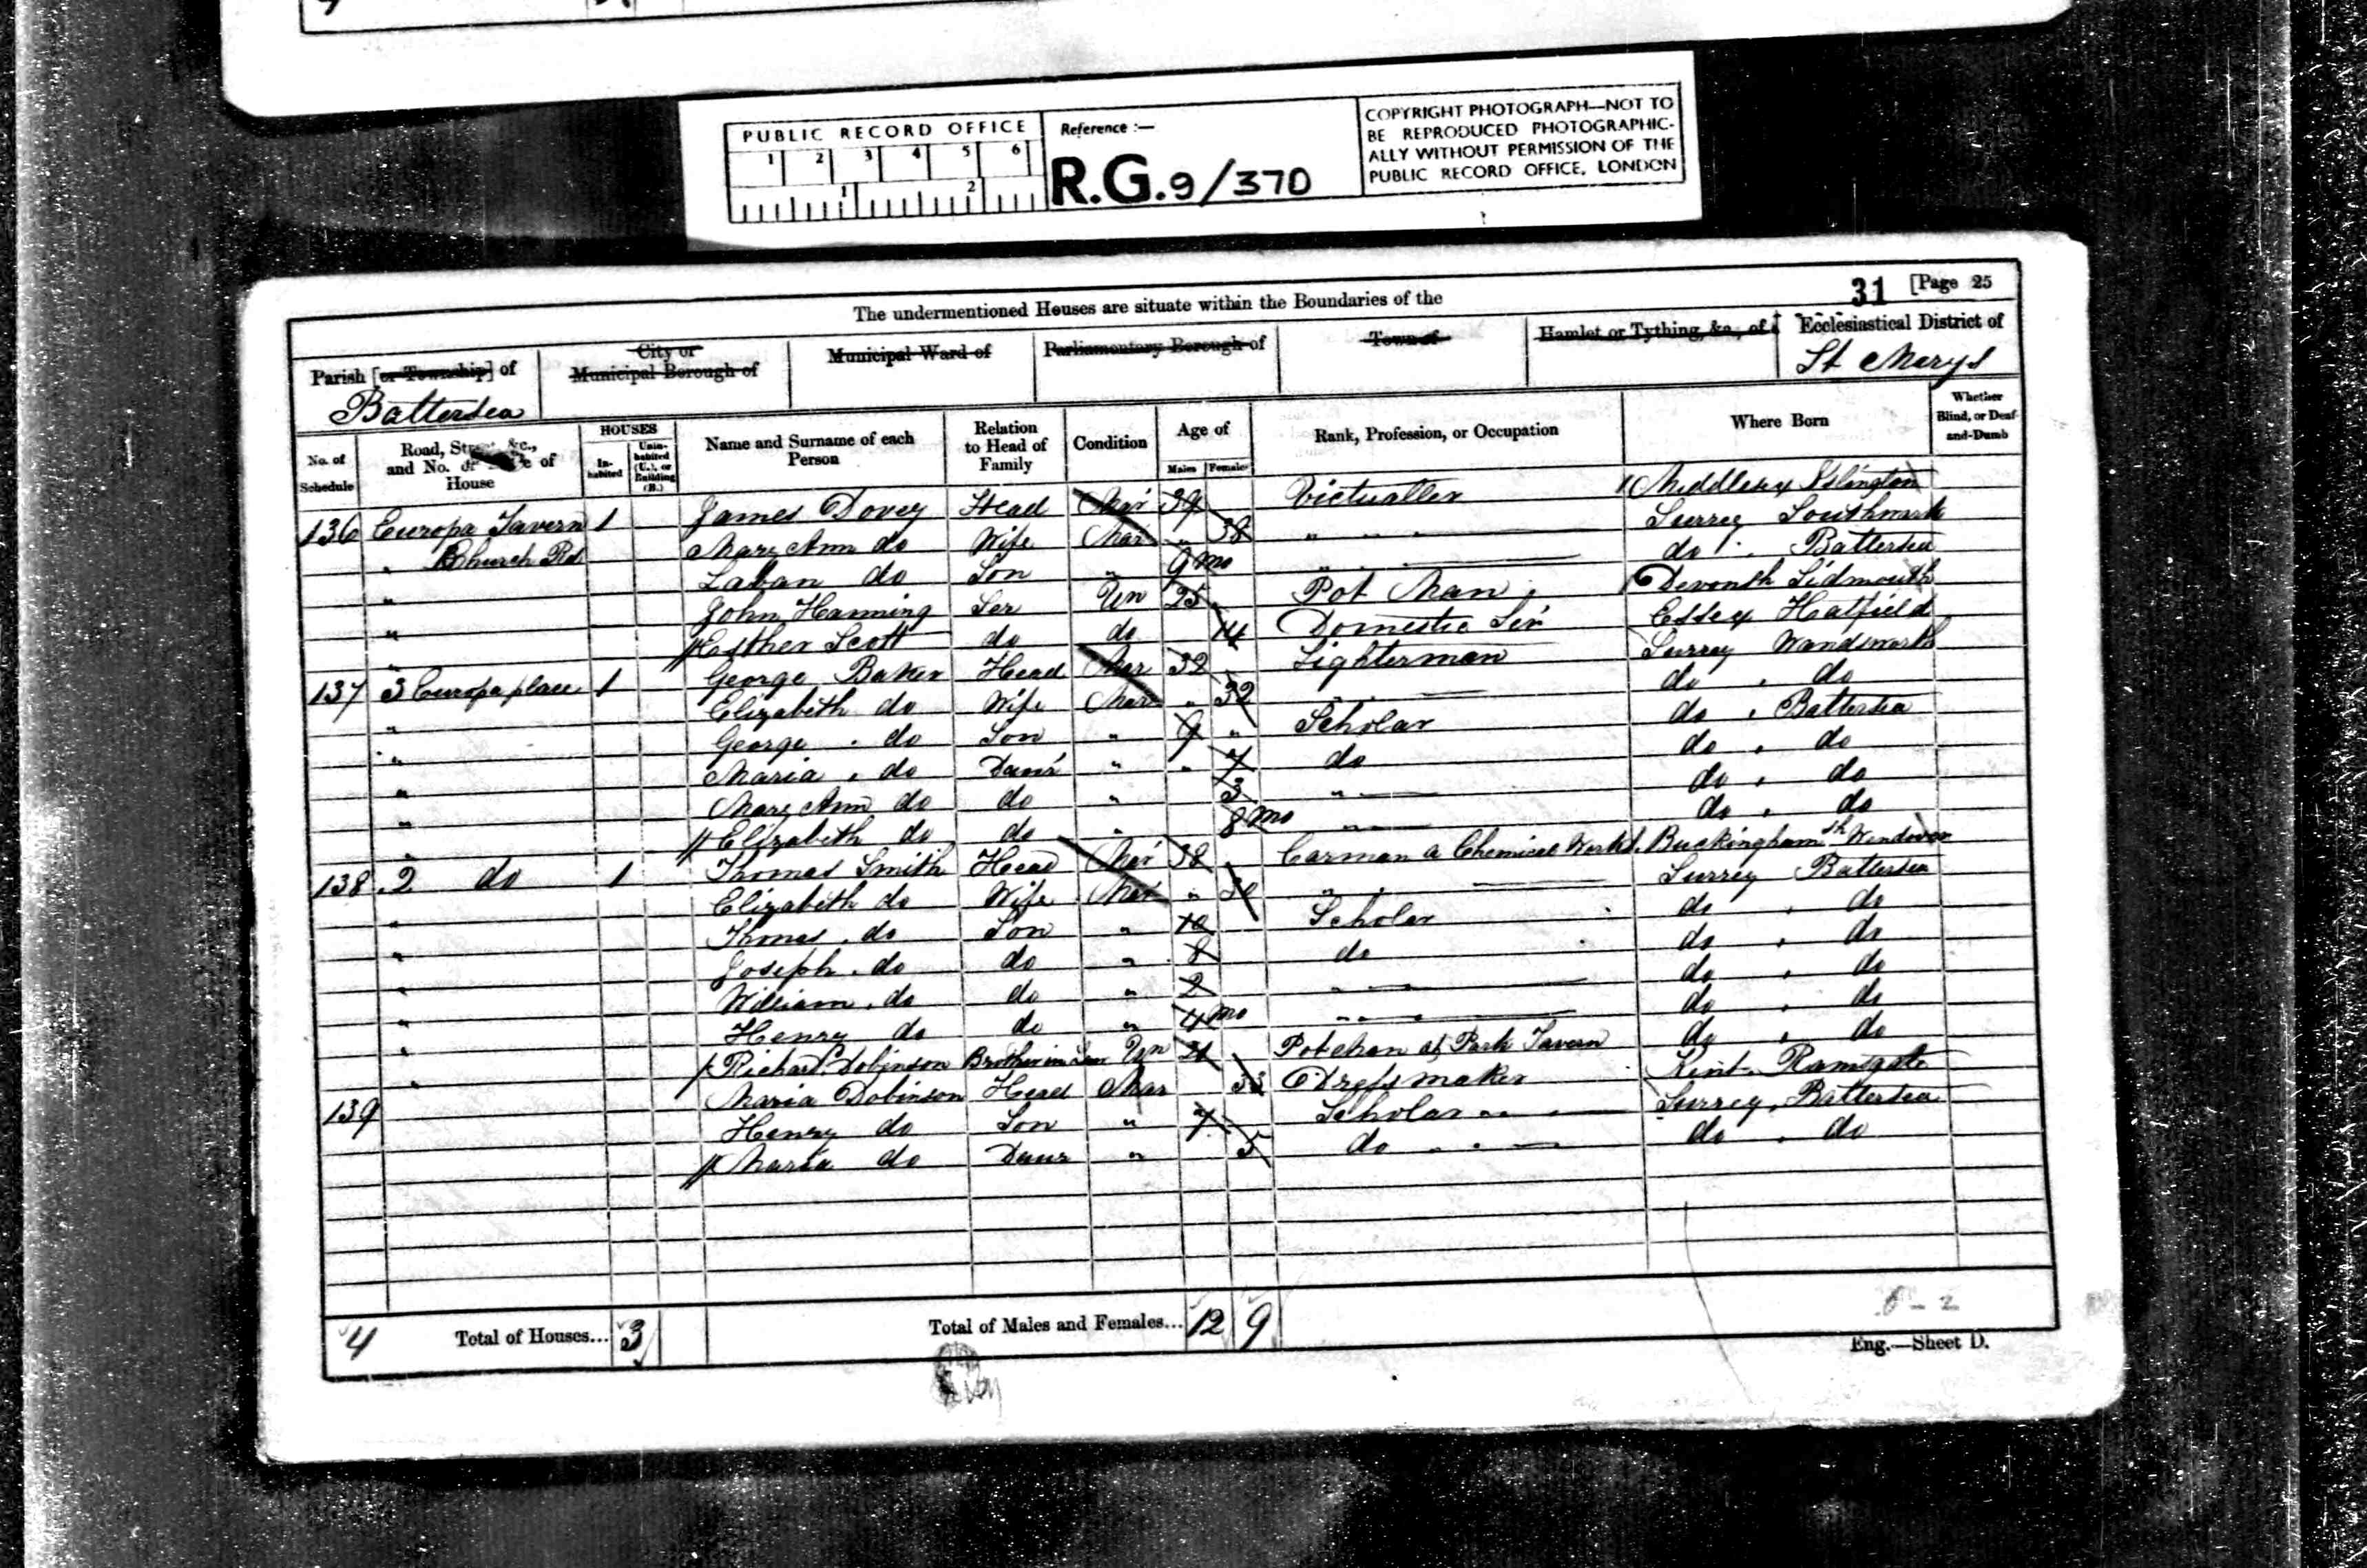 PUBLIC RECORD OFFICE
1 2 3 4 5 6
1 2
Reference :—
R.G. 9/370
COPYRIGHT PHOTOGRAPH—NOT TO
BE REPRODUCED PHOTOGRAPHIC-
ALLY WITHOUT PERMISSION OF THE
PUBLIC RECORD OFFICE, LONDON
31 [Page 25
The undermentioned Houses are situate within the Boundaries of the
Parish [or Township] of Battersea
City or Municipal Borough of
Municipal Ward of
Parliamentary Borough of
Town of
Hamlet or Tything, &c., of
Ecclesiastical District of St Marys
No. of Schedule
Road, Street, &c., and No. or of House
HOUSES
In-habited
Unin-habited (U.), or Building (B.)
Name and Surname of each Person
Relation to Head of Family
Condition
Age of
Males Females
Rank, Profession, or Occupation
Where Born
Whether Blind, or Deaf-and-Dumb
136 Europa Tavern 1 James Dovey Head Mar 39 Victualler Middlesex Islington
" Church Rd Mary Ann do Wife Mar " 38 " " " " Surrey Southwark
" Laban do Son " 9 mo " " do " Battersea
" John Hanning Ser Un 25 Pot Man Devonsh Sidmouth
" Esther Scott do do 14 Domestic Ser Essex Hatfield
137 3 Europa place 1 George Baker Head Mar 32 Lighterman Surrey Wandsworth
" Elizabeth do Wife Mar " 32 " " do " do
" George do Son " 9 " Scholar do " Battersea
" Maria do Daur " " 7 do do " do
" Mary Ann do do " 3 " do " do
" Elizabeth do do " 8 mo " do " do
138 2 do 1 Thomas Smith Head Mar 38 Carman a Chemical Works Buckinghamsh Wendover
" Elizabeth do Wife Mar " " Surrey Battersea
" Thomas do Son " 10 Scholar do " do
" Joseph do do " 8 do do " do
" William do do " 2 " do " do
" Henry do do " 4 mo " do " do
" Richard Dobinson Brother in Law Un 21 Potman at Park Tavern do " do
139 Maria Dobinson Head Mar 33 Dressmaker Kent Ramsgate
Henry do Son " 7 Scholar " Surrey Battersea
Maria do Daur " 5 do " do " do
4 Total of Houses... 3 Total of Males and Females... 12 9
6 - 2
Eng.—Sheet D.